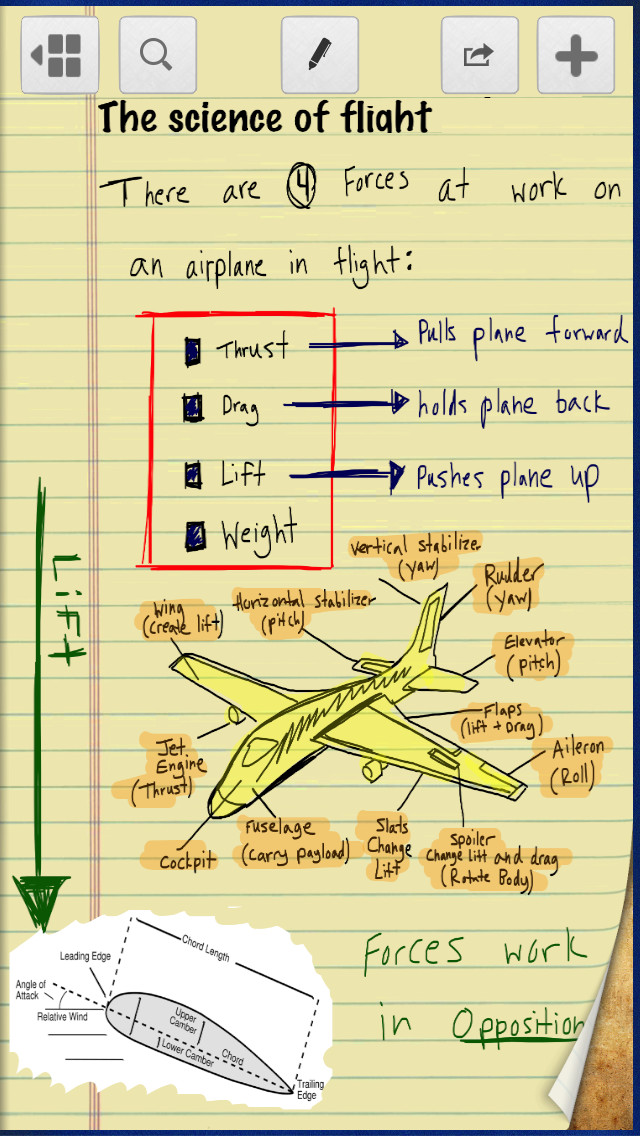 The science of flight
There are 4 Forces at work on
an airplane in flight:
Thrust
Pulls plane forward
Drag
holds plane back
Lift
Pushes plane up
Weight
Lift
Vertical stabilizer
(yaw)
Rudder
(yaw)
Horizontal stabilizer
(pitch)
Wing
(create lift)
Elevator
(pitch)
Flaps
(lift + Drag)
Aileron
(Roll)
Jet
Engine
(Thrust)
Fuselage
(carry payload)
Cockpit
Slats
Change
Lift
Spoiler
Change lift and drag
(Rotate Body)
Forces work
in Opposition
Chord Length
Leading Edge
Angle of
Attack
Relative Wind
Upper
Camber
Lower Camber
Chord
Trailing
Edge